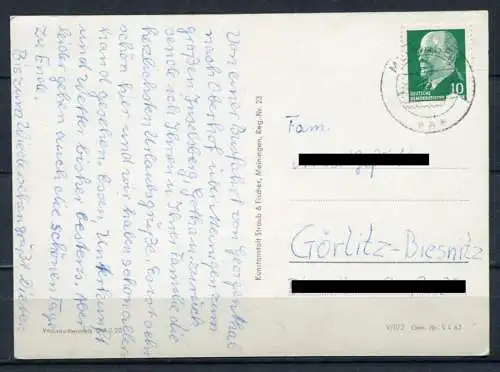 Von einer Busfahrt von Georgenthal
nach Oberhof über Meiningen zum
großen Inselsberg, Gotha u. zurück
sende ich Ihnen u. Ihrer Familie die
herzlichsten Urlaubsgrüße. Es ist sehr
schön hier und wir haben schon allerhand
gesehen. Essen, Unterkunft
und Wetter bisher bestens. Aber
leider gehen auch die schönen Tage
zu Ende.
Bis zum Wiedersehen grüßt
Kunstanstalt Straub & Fischer, Meiningen, Reg. Nr. 23
DEUTSCHE
DEMOKRATISCHE
10
Fam.
Görlitz-Biesnitz
Verbraucherpreis DM 0.20
V/11/2 Gen. Nr.